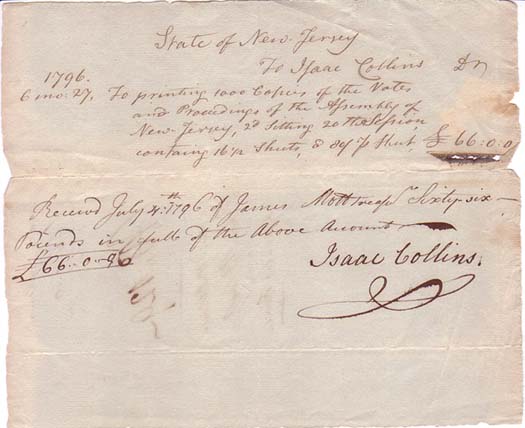 State of New-Jersey
To Isaac Collins Dr
1796.
6 mo. 27, To printing 1000 Copies of the Votes
and Proceedings of the Assembly of
New-Jersey, 2d Sitting 20th Session,
containg 16½ Sheets, @ 80/ ⅌ Sheet £ 66:0:0
Receivd July 4th 1796 of James Mott Sixty six
Pounds in full of the Above Account
£66-0-0
Isaac Collins.